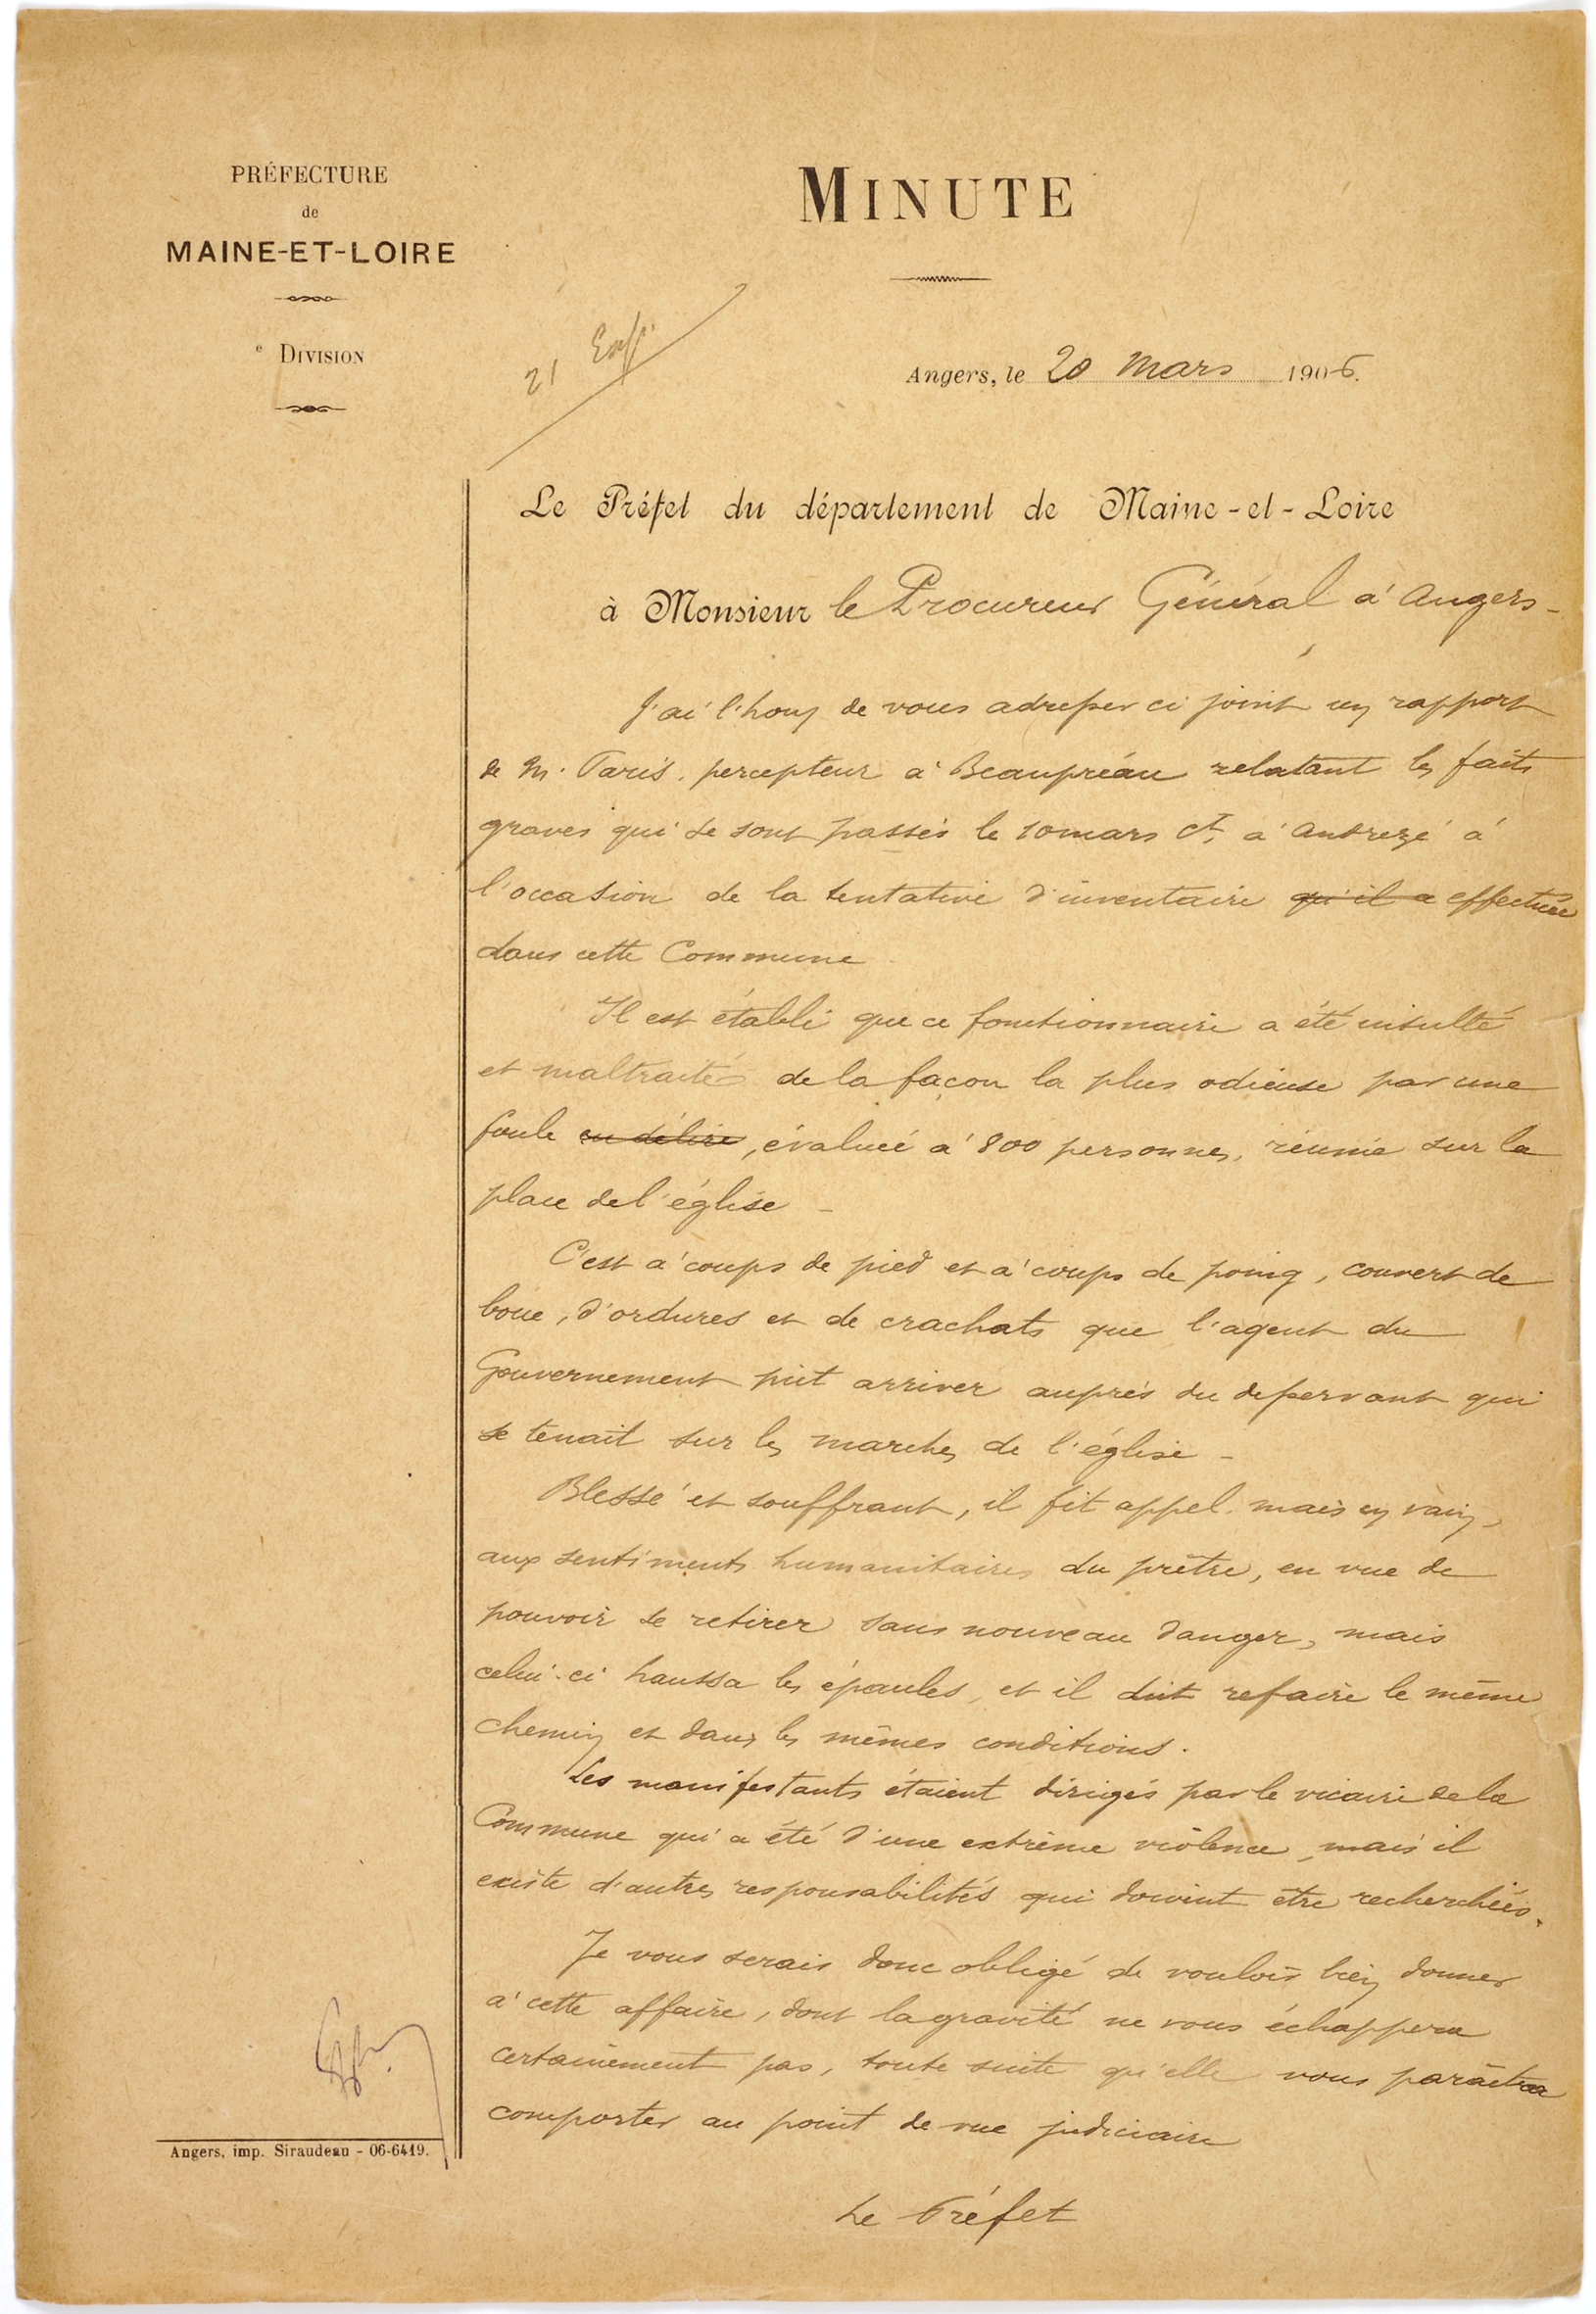 PRÉFECTURE
de
MAINE-ET-LOIRE
e DIVISION
MINUTE
21 Exp.
Angers, le 20 Mars 1906.
Le Préfet du département de Maine-et-Loire
à Monsieur le Procureur Général à Angers-
J'ai l'hon de vous adresser ci joint un rapport
de M. Paris, percepteur à Beaupréau relatant les faits
graves qui se sont passés le 10 mars ct, à Andrezé à
l'occasion de la tentative d'inventaire qu'il a effectuée
dans cette Commune
Il est établi que ce fonctionnaire a été insulté
et maltraité de la façon la plus odieuse par une
foule en délire, évaluée à 800 personnes, réunie sur la
place de l'église -
C'est à coups de pied et à coups de poing, couvert de
boue, d'ordures et de crachats que l'agent du
Gouvernement put arriver auprès du desservant qui
se tenait sur les marches de l'église -
Blessé et souffrant, il fit appel, mais en vain,
aux sentiments humanitaires du prêtre, en vue de
pouvoir se retirer sans nouveau danger, mais
celui-ci haussa les épaules, et il dut refaire le même
chemin et dans les mêmes conditions.
Les manifestants étaient dirigés par le vicaire de la
Commune qui a été d'une extrême violence, mais il
existe d'autres responsabilités qui doivent être recherchées.
Je vous serais donc obligé de vouloir bien donner
à cette affaire, dont la gravité ne vous échappera
certainement pas, toute suite qu'elle vous paraîtra
comporter au point de vue judiciaire
Le Préfet
Angers, imp. Siraudeau - 06-6419.